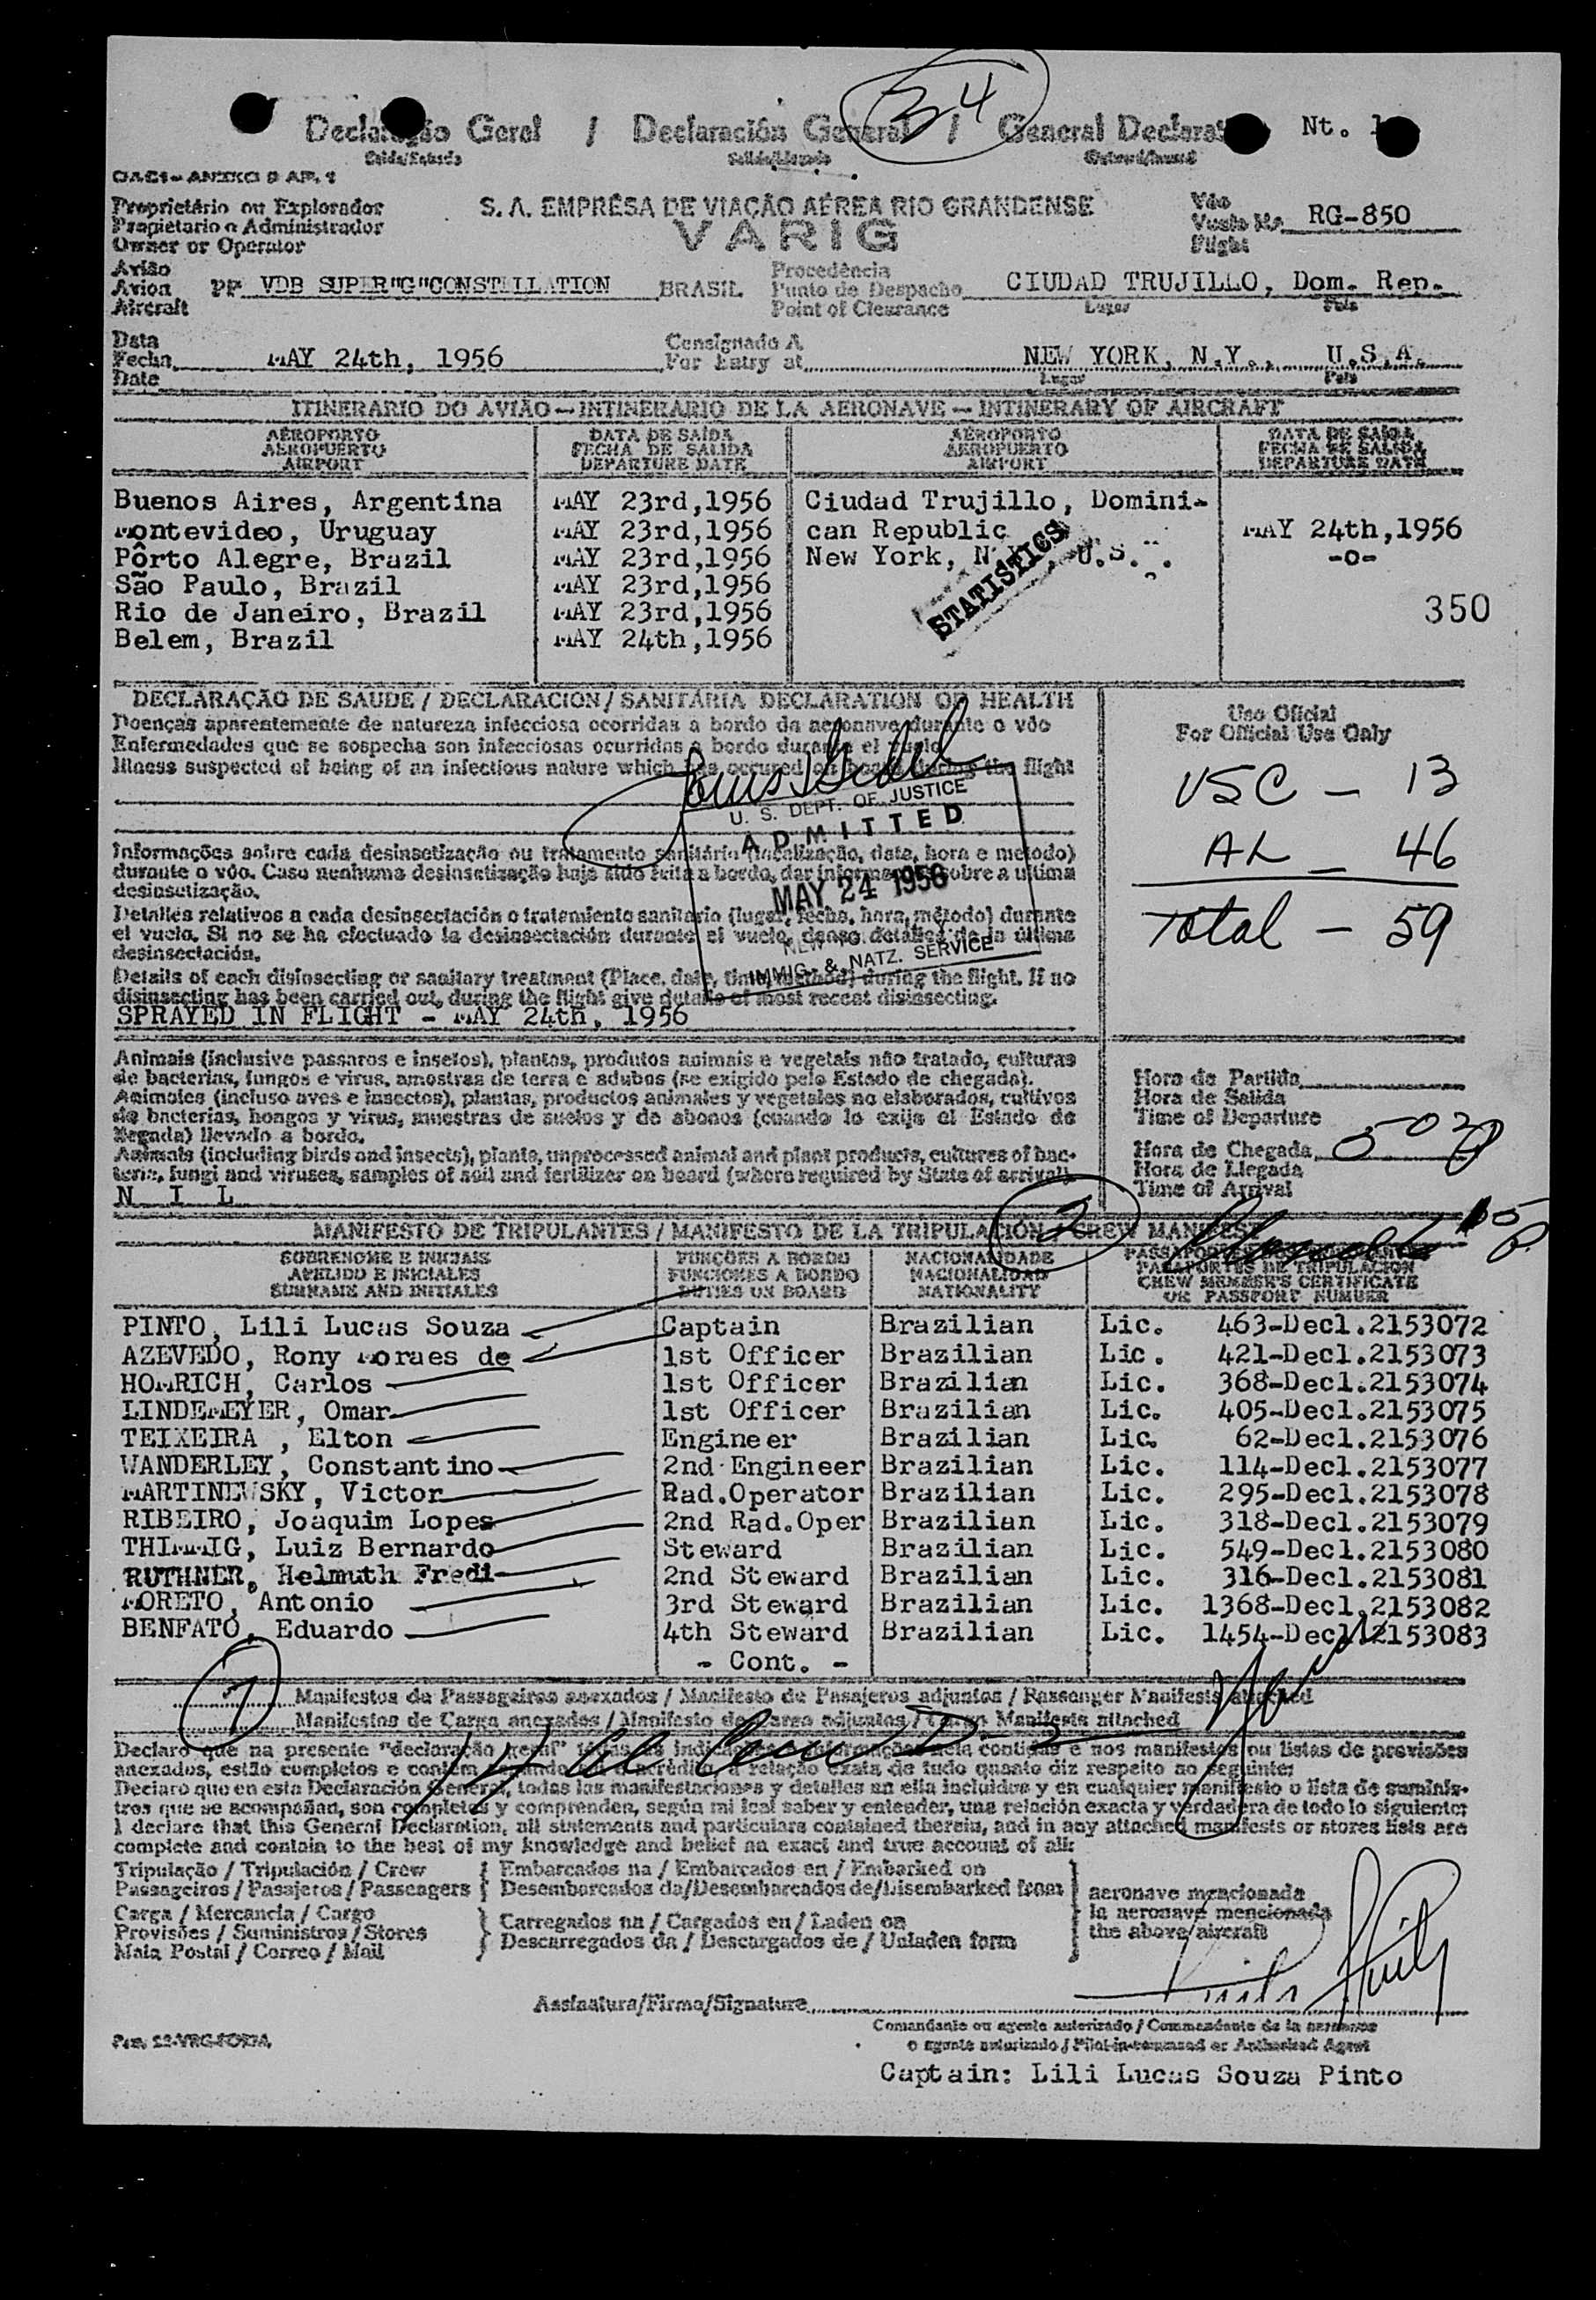 34
Declaração Geral / Declaración General / General Declarat Nt. 1
Saída/Entrada Salida/Llegada Outward/Inward
OACI - ANEXO 9 AP. 1
Proprietário ou Explorador
Propietario o Administrador
Owner or Operator
S. A. EMPRÊSA DE VIAÇÃO AÉREA RIO GRANDENSE
VARIG
Vôo
Vuelo No. RG-850
Flight
Avião
Avion
Aircraft
PP VDB SUPER"G"CONSTELLATION BRASIL
Procedência
Punto de Despacho CIUDAD TRUJILLO, Dom. Rep.
Point of Clearance
Lugar País
Data
Fecha MAY 24th, 1956
Date
Consignado A
For Entry at NEW YORK, N.Y., U.S.A.
Lugar País
ITINERARIO DO AVIÃO — INTINERARIO DE LA AERONAVE — INTINERARY OF AIRCRAFT
AÉROPORTO
AEROPUERTO
AIRPORT
DATA DE SAÍDA
FECHA DE SALIDA
DEPARTURE DATE
AÉROPORTO
AEROPUERTO
AIRPORT
DATA DE SAÍDA
FECHA DE SALIDA
DEPARTURE DATE
Buenos Aires, Argentina MAY 23rd,1956 Ciudad Trujillo, Domini-
Montevideo, Uruguay MAY 23rd,1956 can Republic MAY 24th,1956
Pôrto Alegre, Brazil MAY 23rd,1956 New York, N.Y., U.S. -o-
São Paulo, Brazil MAY 23rd,1956
Rio de Janeiro, Brazil MAY 23rd,1956
Belem, Brazil MAY 24th,1956
STATISTICS
350
DECLARAÇÃO DE SAUDE / DECLARACION / SANITÁRIA DECLARATION OF HEALTH
Doenças aparentemente de natureza infecciosa ocorridas a bordo da aeronave durante o vôo
Enfermedades que se sospecha son infecciosas ocurridas a bordo durante el vuelo
Illness suspected of being of an infectious nature which has occured on board during the flight
U. S. DEPT. OF JUSTICE
ADMITTED
MAY 24 1956
IMMIG. & NATZ. SERVICE
Informações sobre cada desinsetização ou tratamento sanitário (localização, data, hora e metodo)
durante o vôo. Caso nenhuma desinsetização haja sido feita a bordo, dar informações sobre a ultima
desinsetização.
Detalles relativos a cada desinsectación o tratamiento sanitario (lugar, fecha, hora, método) durante
el vuelo. Si no se ha efectuado la desinsectación durante el vuelo, dense detalles de la última
desinsectación.
Details of each disinsecting or sanitary treatment (Place, date, time, method) during the flight. If no
disinsecting has been carried out, during the flight give details of most recent disinsecting.
SPRAYED IN FLIGHT - MAY 24th, 1956
Uso Oficial
For Official Use Only
USC - 13
AL - 46
Total - 59
Animais (inclusive passaros e insetos), plantas, produtos animais e vegetais não tratado, culturas
de bacterias, fungos e virus, amostras de terra e adubos (se exigido pelo Estado de chegada).
Animales (incluso aves e insectos), plantas, productos animales y vegetales no elaborados, cultivos
de bacterias, hongos y virus, muestras de suelos y de abonos (cuando lo exija el Estado de
llegada) llevado a bordo.
Animals (including birds and insects), plants, unprocessed animal and plant products, cultures of bac-
teria, fungi and viruses, samples of soil and fertilizer on board (where required by State of arrival).
N I L
Hora de Partida
Hora de Salida
Time of Departure
Hora de Chegada
Hora de Llegada
Time of Arrival
2
MANIFESTO DE TRIPULANTES / MANIFESTO DE LA TRIPULACIÓN CREW MANIFEST
SOBRENOME E INICIAIS
APELIDO E INICIALES
SURNAME AND INITIALES
FUNÇÕES A BORDO
FUNCIONES A BORDO
DUTIES ON BOARD
NACIONALIDADE
NACIONALIDAD
NATIONALITY
PASAPORTES DE TRIPULACION
CREW MEMBER'S CERTIFICATE
OR PASSPORT NUMBER
PINTO, Lili Lucas Souza Captain Brazilian Lic. 463-Decl.2153072
AZEVEDO, Rony Moraes de 1st Officer Brazilian Lic. 421-Decl.2153073
HOMRICH, Carlos 1st Officer Brazilian Lic. 368-Decl.2153074
LINDEMEYER, Omar 1st Officer Brazilian Lic. 405-Decl.2153075
TEIXEIRA , Elton Engineer Brazilian Lic. 62-Decl.2153076
WANDERLEY, Constantino 2nd Engineer Brazilian Lic. 114-Decl.2153077
MARTINEWSKY, Victor Rad.Operator Brazilian Lic. 295-Decl.2153078
RIBEIRO, Joaquim Lopes 2nd Rad.Oper Brazilian Lic. 318-Decl.2153079
THIMMIG, Luiz Bernardo Steward Brazilian Lic. 549-Decl.2153080
RUTHNER, Helmuth Fredi 2nd Steward Brazilian Lic. 316-Decl.2153081
MORETO, Antonio 3rd Steward Brazilian Lic. 1368-Decl.2153082
BENFATO, Eduardo 4th Steward Brazilian Lic. 1454-Decl.2153083
- Cont. -
Manifestos de Passageiros anexados / Manifesto de Pasajeros adjuntos / Passenger Manifests attached
Manifestos de Carga anexados / Manifesto de Carga adjuntos / Cargo Manifests attached
Declaro que na presente "declaração geral" todas as indicações e informações nela contidas e nos manifestos ou listas de provisões
anexados, estão completos e contém segundo sei e acredito, a relação exata de tudo quanto diz respeito ao seguinte:
Declaro que en esta Declaración General, todas las manifestaciones y detalles en ella incluidos y en cualquier manifiesto o lista de suminis-
tros que se acompañan, son completos y comprenden, según mi leal saber y entender, una relación exacta y verdadera de todo lo siguiente:
I declare that this General Declaration, all statements and particulars contained therein, and in any attached manifests or stores lists are
complete and contain to the best of my knowledge and belief an exact and true account of all:
Tripulação / Tripulación / Crew
Passageiros / Pasajeros / Passengers
Embarcados na / Embarcados en / Embarked on
Desembarcados da/Desembarcados de/Disembarked from
Carga / Mercancia / Cargo
Provisões / Suministros / Stores
Mala Postal / Correo / Mail
Carregados na / Cargados en / Laden on
Descarregados da / Descargados de / Unladen form
aeronave mencionada
la aeronave mencionada
the above/aircraft
Assinatura/Firma/Signature
Comandante ou agente autorizado / Commandante de la aeronave
o agente autorizado / Pilot-in-command or Authorized Agent
Captain: Lili Lucas Souza Pinto